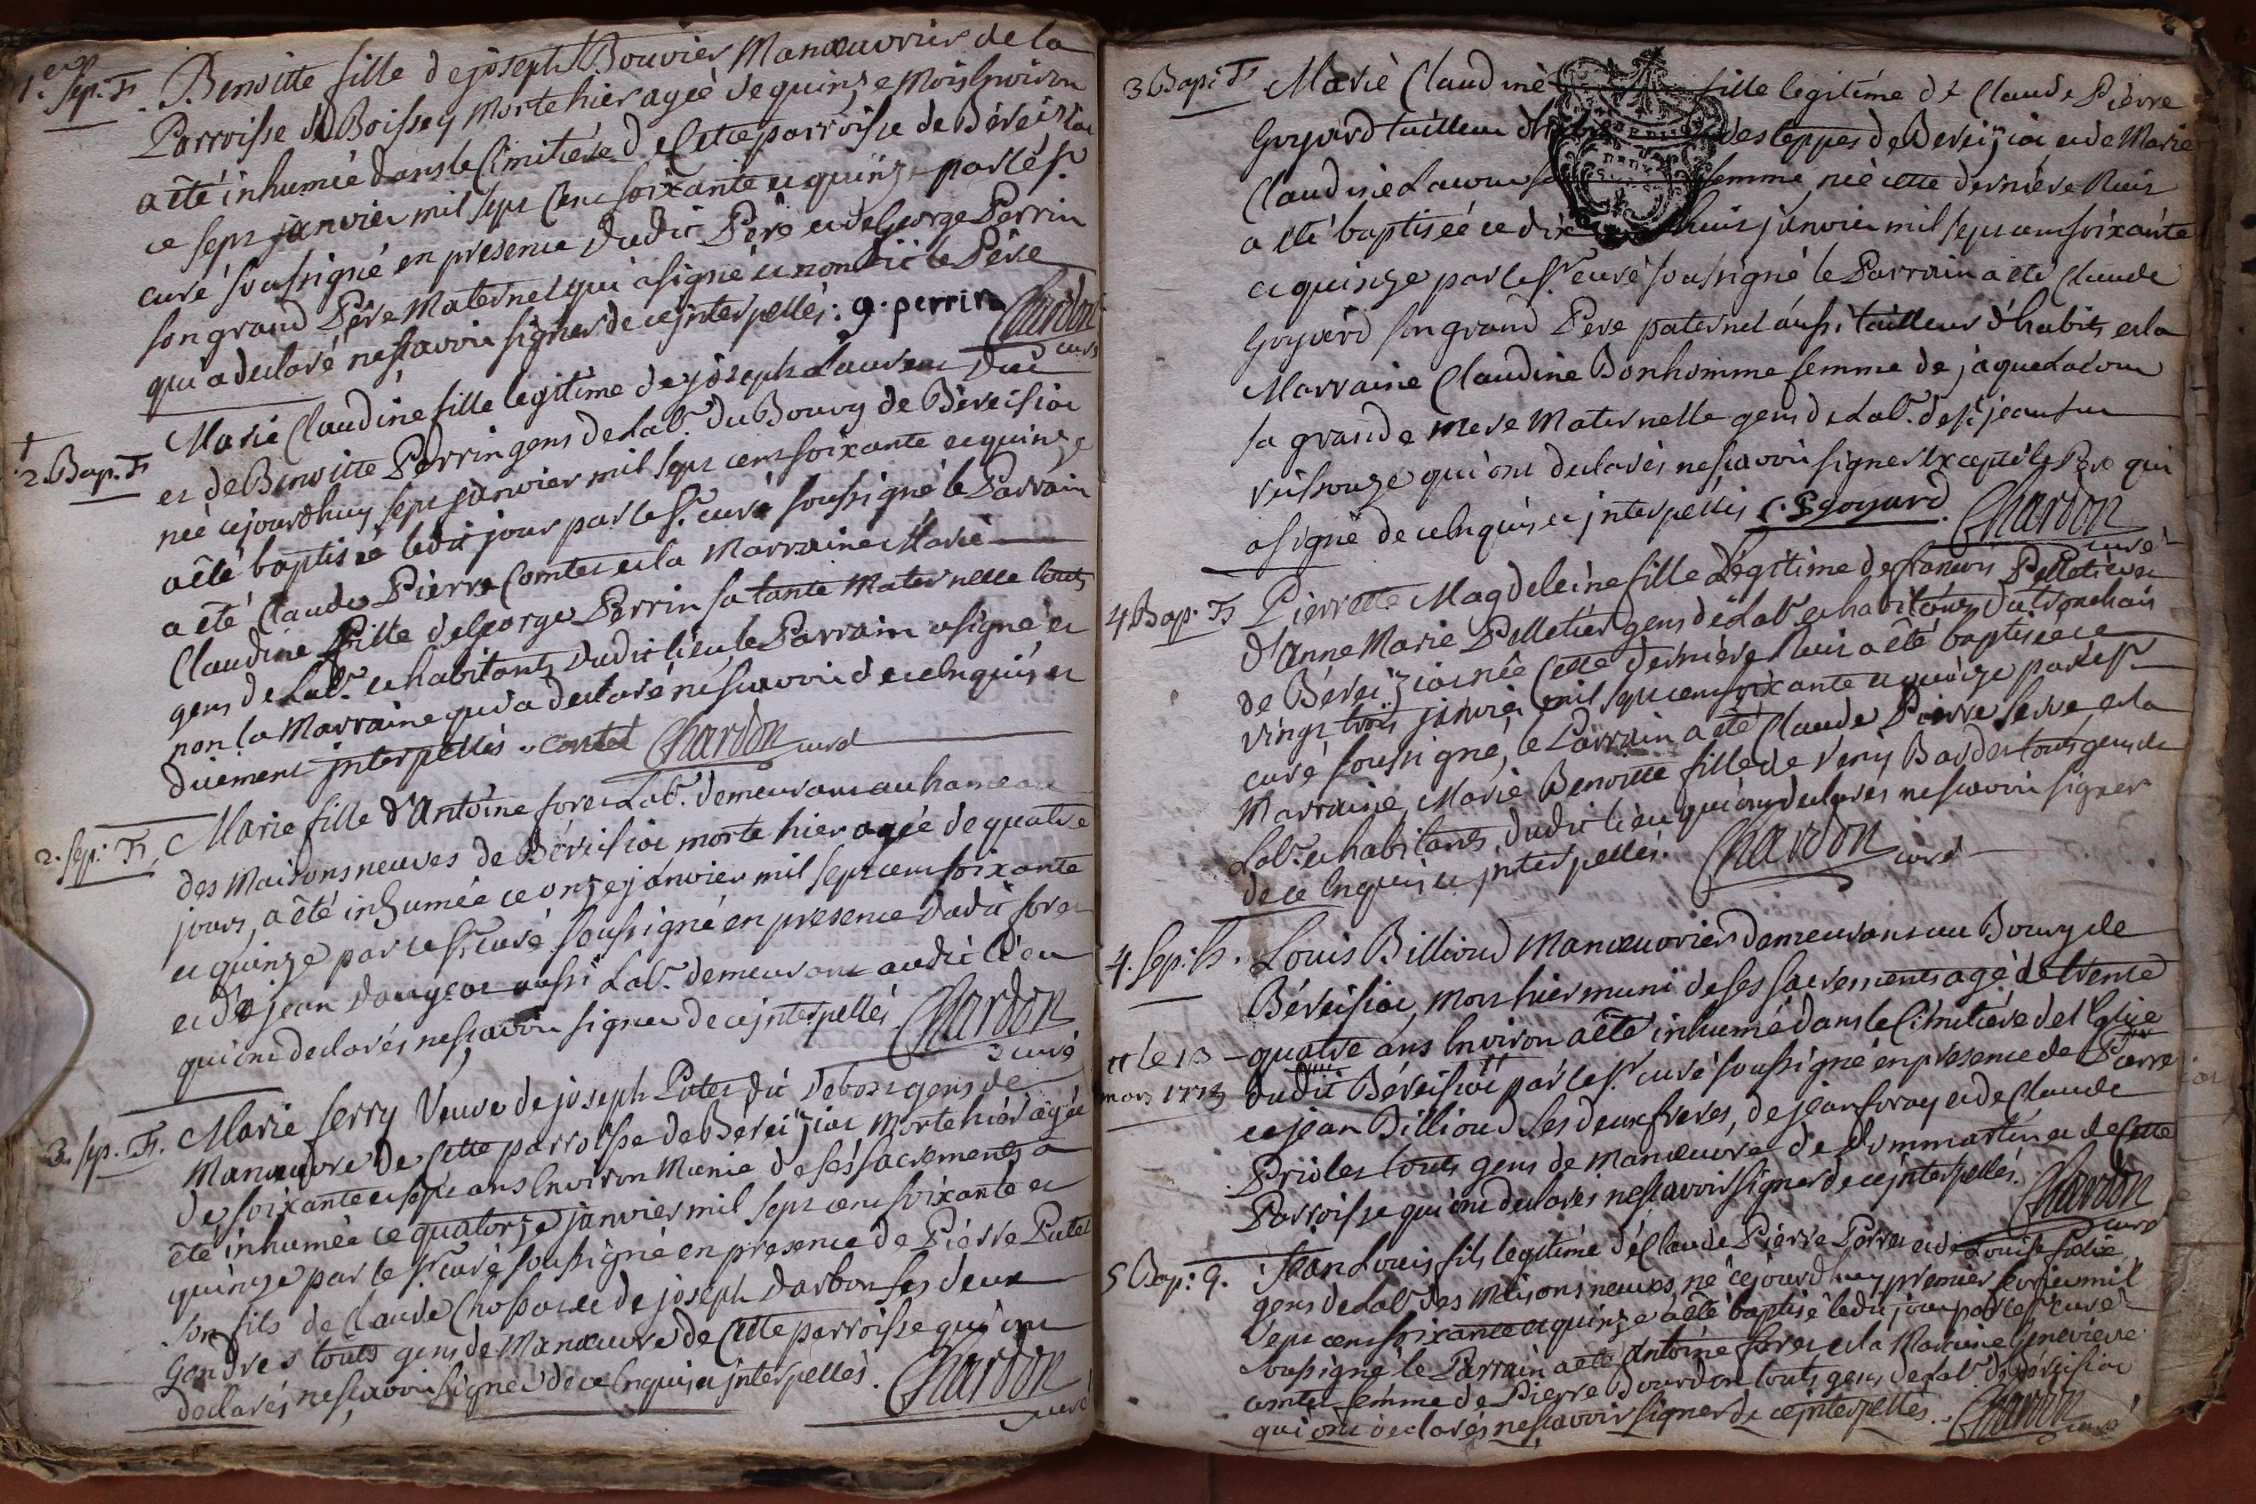 1.er Sep. F. Benoitte fille de joseph Bouvier Manœuvrier de la
Parroisse de Boissey Morte hier agée de quinze Mois Environ
a été inhumée dans le Cimitiére de Cette parroisse de Béreiziat
ce sept janvier mil sept Cent soixante et quinze par le Sr.
curé soussigné en presence dudit Pere et de George Perrin
son grand Pére Maternel qui a signé et non led. le Pére
qui a declaré ne scavoir signer de ce jnterpellés. g. perrin Chardon
curé
2. Bap. F. Marie Claudine fille legitime de joseph Laurent
et de Benoitte Perrin gens de Lab.r du Bourg de Béreisiat
née cejourdhuy sept janvier mil sept cent soixante et quinze
a été baptisée ledit jour par le Sr. curé soussigné le Parrain
a été Claude Pierre Comtet et la Marraine Marie
Claudine fille de George Perrin sa tante Maternelle touts
gens de Lab.r et habitants dudit lieu le Parrain a signé et
non la Marraine qui a declaré ne scavoir de ce Enquis et
duement jnterpellés. comtet Chardon curé
2. Sep. F. Marie fille d'Antoine foret Lab.r demeurant au hameau
des Maisons neuves de Béreisiat morte hier agée de quatre
jours, a été inhumée ce onze janvier mil sept cent soixante
et quinze par le Sr. curé soussigné en presence dudit foret
et de jean aussi Lab.r demeurant audit lieu
qui ont declarés ne scavoir signer de ce jnterpellés Chardon
curé
3. Sep. F. Marie ferry Veuve de joseph Putet dit gens de
Manœuvre de Cette parroisse de Bereiziat Morte hier agée
de soixante et sept ans Environ Munie de ses sacrements a
été inhumée ce quatorze janvier mil sept cent soixante et
quinze par le Sr. curé soussigné en presence de Piérre Putet
son fils de Claude et de joseph Darbon ses deux
Gendres touts gens de Manœuvre de Cette parroisse qui ont
declarés ne scavoir signer de ce Enquis et jnterpellés. Chardon
curé
3 Bap. F. Marie Claudine fille legitime de Claude Piérre
Goyard tailleur des teppes de Bereiziat et de Marie
Claudine Lacour femme née cette derniére Nuit
a été baptisée ce dix huit janvier mil sept cent soixante
et quinze par le Sr. curé soussigné le Parrain a été Claude
Goyard son grand Pere paternel aussi tailleur d'habits et la
Marraine Claudine Bonhomme femme de jaque Lacour
sa grande mere Maternelle gens de Lab.r de St. jean sur
reissouze qui ont declarés ne scavoir signer Excepté le Pere qui
a signé de ce Enquis et jnterpellés C. P goyard. Chardon
curé
4 Bap. F. Pierrette Magdeleine fille Légitime de francois Pelletier et
d'Anne Marie Pelletier gens de Lab.r et habitans du tronchai
de Béreiziat née Cette derniére Nuit a été baptisée ce
vingt trois janvier mil sept cent soixante et quinze par le Sr.
curé soussigné, le Parrain a été Claude Pierre et la
Marraine Marie Benoitte fille de Bardet touts gens de
Lab.r et habitans dudit lieu qui ont declarés ne scavoir signer
de ce Enquis et jnterpellés. Chardon curé
4. Sep. h. Louis Billioud Manœuvrier demeurant au Bourg de
Béreisiat, mort hier muni de ses sacrements agé de trente
quatre ans Environ a été inhumé dans le Cimitiére de l'Eglise
le 13
mars 1775
dudit Béreisiat par le Sr. curé soussigné en presence de Pierre
et jean Billioud ses deux freres, de jean foray et de Claude
touts gens de manœuvre de Dommartin et de Cette
Parroisse qui ont declarés ne scavoir signer de ce jnterpellés. Chardon
curé
5 Bap. g. Jean Louis fils legitime de Claude Piérre Perret et de Louise
gens de Lab.r des Maisons neuves né cejourdhuy premier fevrier mil
sept cent soixante et quinze a été baptisé ledit jour par le Sr. curé
soussigné le Parrain a été Antoine foret et la Maraine Genevieve
comtet femme de Pierre Dourdon touts gens de Lab.r de Béreisiat
qui ont declarés ne scavoir signer de ce jnterpellés. Chardon
curé